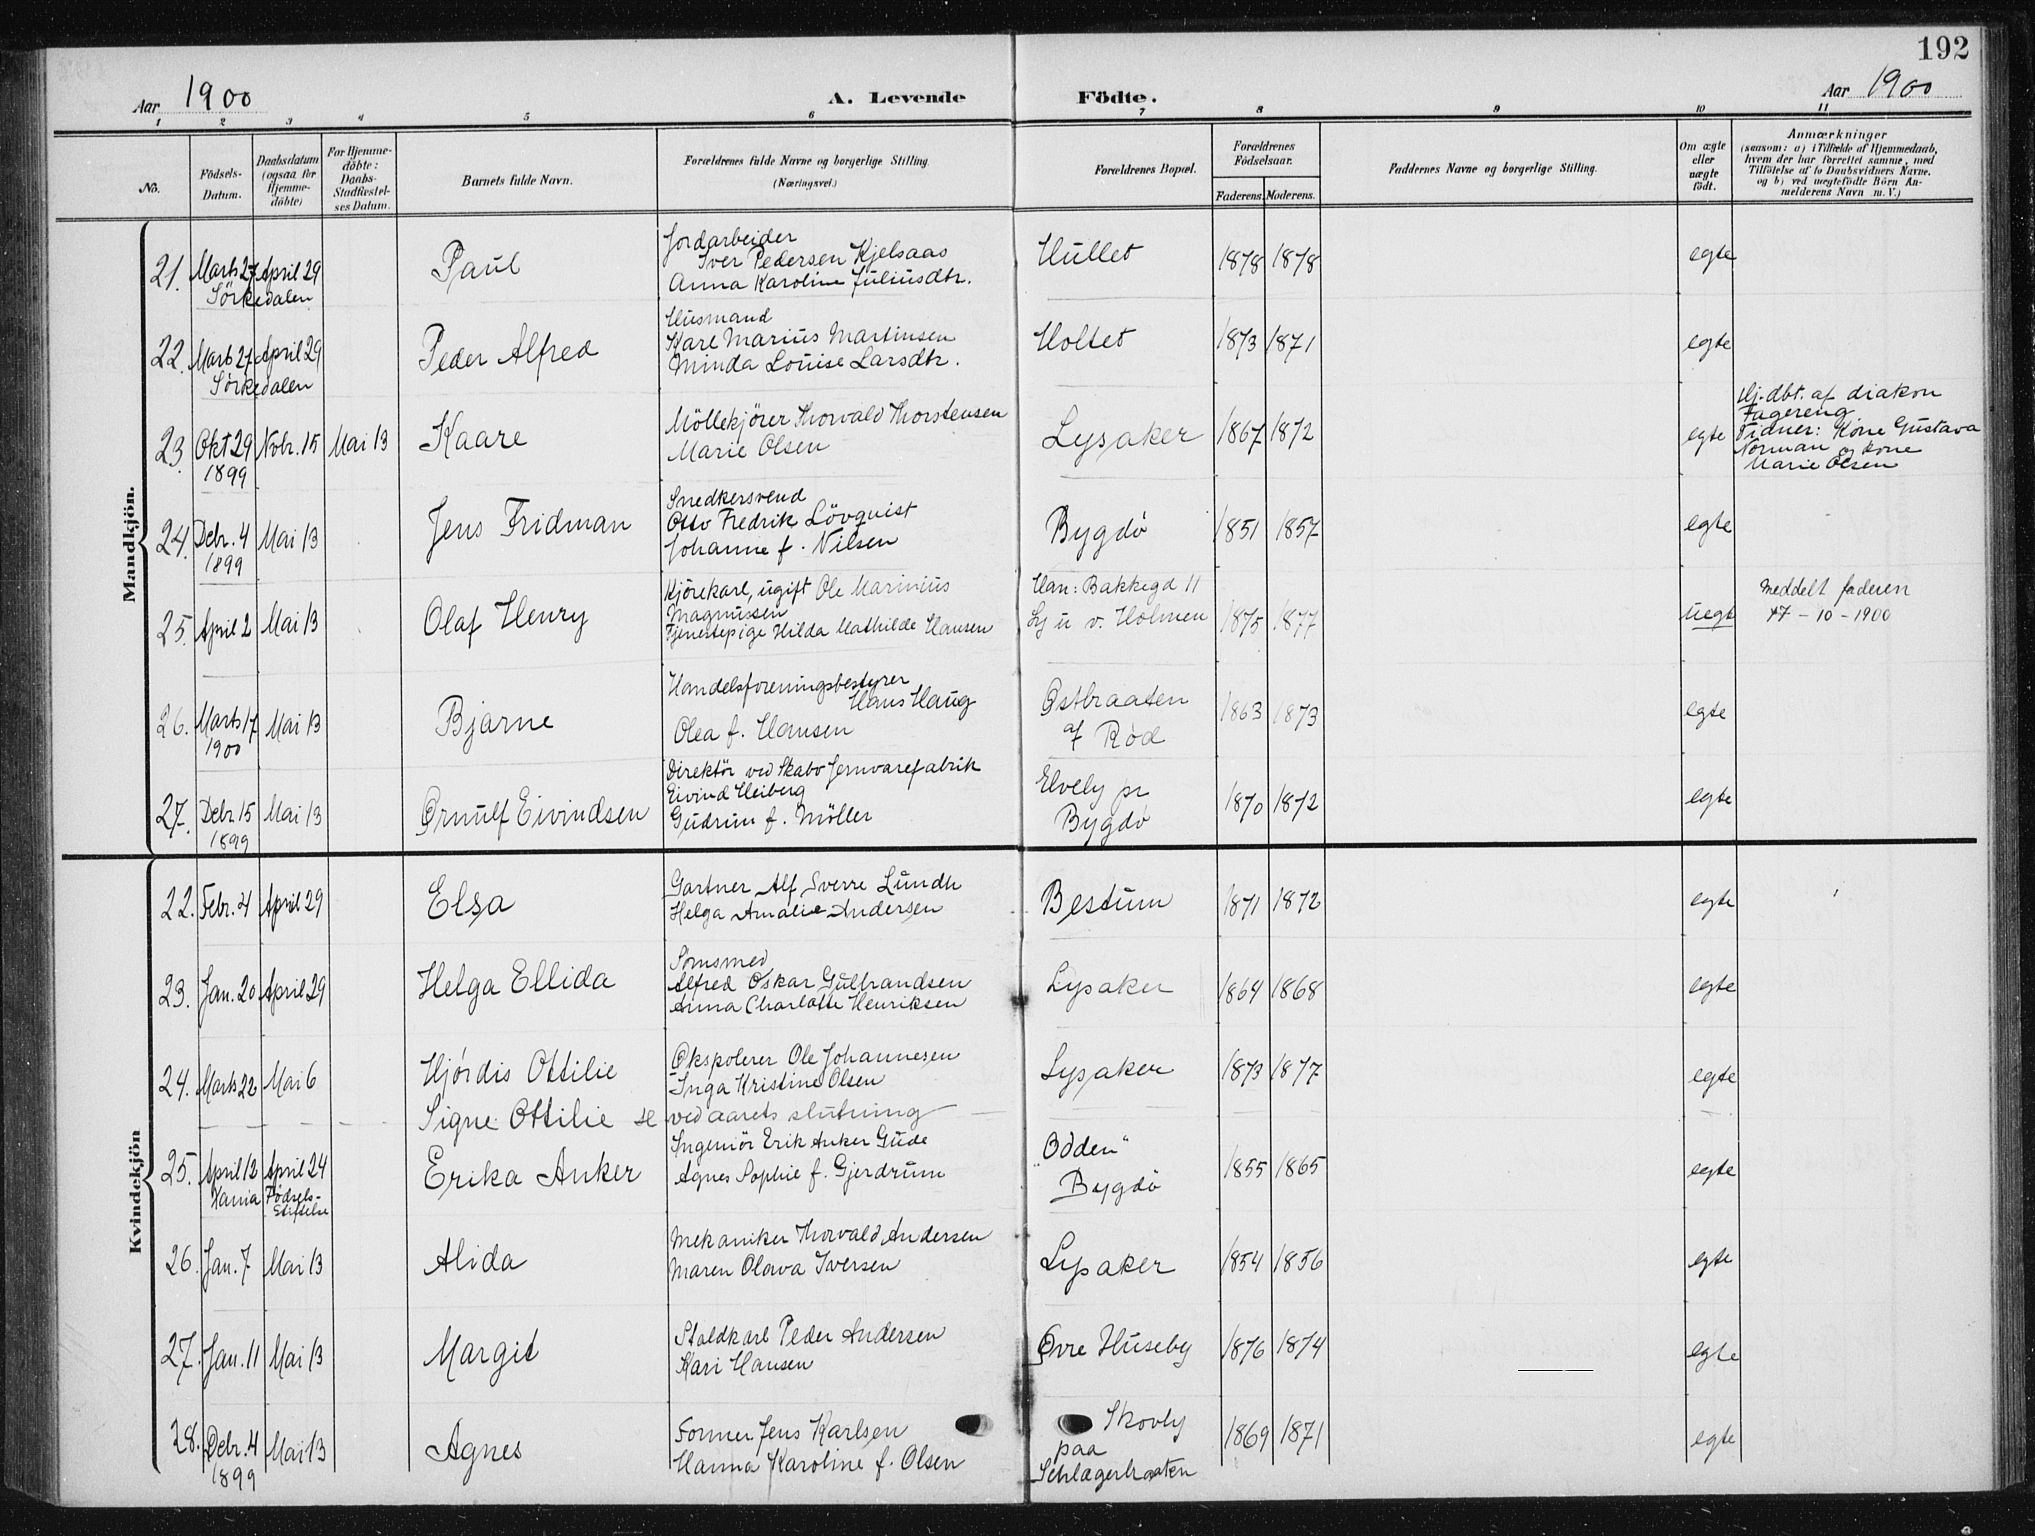 192
Aar 1900 A. Levende Födte. Aar 1900
1 2 3 4 5 6 7 8 9 10 11
No.
Födsels-Datum.
Daabsdatum (ogsaa for Hjemme-döbte)
For Hjemme-döbte: Daabs-Stadfæstel-ses Datum.
Barnets fulde Navn.
Forældrenes fulde Navne og borgerlige Stilling.
(Næringsvei.)
Forældrenes Bopæl.
Forældrenes Födselsaar.
Faderens. Moderens.
Faddernes Navne og borgerlige Stilling.
Om ægte eller uægte födt.
Anmærkninger
(saasom: a) i Tilfælde af Hjemmedaab,
hvem der har forrettet samme, med
Tilföielse af to Daabsvidners Navne.
og b) ved uægtefödte Börn An-
melderens Navn m. V.)
Mandkjön.
21. Marts 27 April 29 Paul
Sörkedalen
Jordarbeider
Iver Pedersen Kjelsaas
Anna Karoline Juliusdtr.
Hullet 1878 1878 egte
22. Marts 27 April 29 Peder Alfred
Sörkedalen
Husmand
Karl Marius Martinsen
Minda Louise Larsdtr.
Holtet 1873 1871 egte
23. Okt 29 Nobr. 15 Mai 13 Kaare
1899
Möllekjörer Thorvald Thorstensen
Marie Olsen
Lysaker 1867 1872 egte
Hj. dbt. af diakon
Fagereng
Vidner: Kone Gustava
Norman og kone
Marie Olsen
24. Debr. 4 Mai 13 Jens Fridman
1899
Snedkersvend
Otto Fredrik Lövqvist
Johanne f. Nilsen
Bygdö 1851 1857 egte
25. April 2 Mai 13 Olaf Henry
Kjörekarl, ugift Ole Marinius
Magnussen
Tjenestepige Hilda Mathilde Hansen
Han: Bakkegd 11
Ly u v. Holmen 1875 1877 uegt
Meddelt faderen
17-10-1900
26. Marts 17 Mai 13 Bjarne
1900
Handelsforeningsbestyrer
Hans Haug
Olea f. Hansen
Østbraaten
af Röd 1863 1873 egte
27. Debr. 15 Mai 13 Ørnulf Eivindsen
1899
Direktör ved Skabo Jernvarefabrik
Eivind Heiberg
Gudrun f. Möller
Elvely pr
Bygdö 1870 1872 egte
Kvindekjön
22. Febr. 4 April 29 Elsa
Gartner Alf Sverre Lundh
Helga Amalie Andersen
Bestum 1871 1872 egte
23. Jan. 20 April 29 Helga Ellida
Sömsmed
Alfred Oskar Gulbrandsen
Anna Charlotte Henriksen
Lysaker 1864 1868 egte
24. Marts 22 Mai 6 Hjördis Ottilie
Økspolerer Ole Johannesen
Inga Kristine Olsen
Lysaker 1873 1877 egte
Signe Ottilie se ved aarets slutning
25. April 12 April 24 Erika Anker
Xania Födsels-
Stiftelse
Ingeniör Erik Anker Gude
Agnes Sophie f. Gjerdrum
"Odden"
Bygdö 1855 1865 egte
26. Jan. 7 Mai 13 Alida
Mekaniker Thorvald Andersen
Maren Olava Iversen
Lysaker 1854 1856 egte
27. Jan. 11 Mai 13 Margit
Staldkarl Peder Andersen
Kari Hansen
Øvre Huseby 1876 1874 egte
28. Debr. 4 Mai 13 Agnes
1899
Former Jens Karlsen
Hanna Karoline f. Olsen
Skovly
paa
Schlagerbraaten 1869 1871 egte